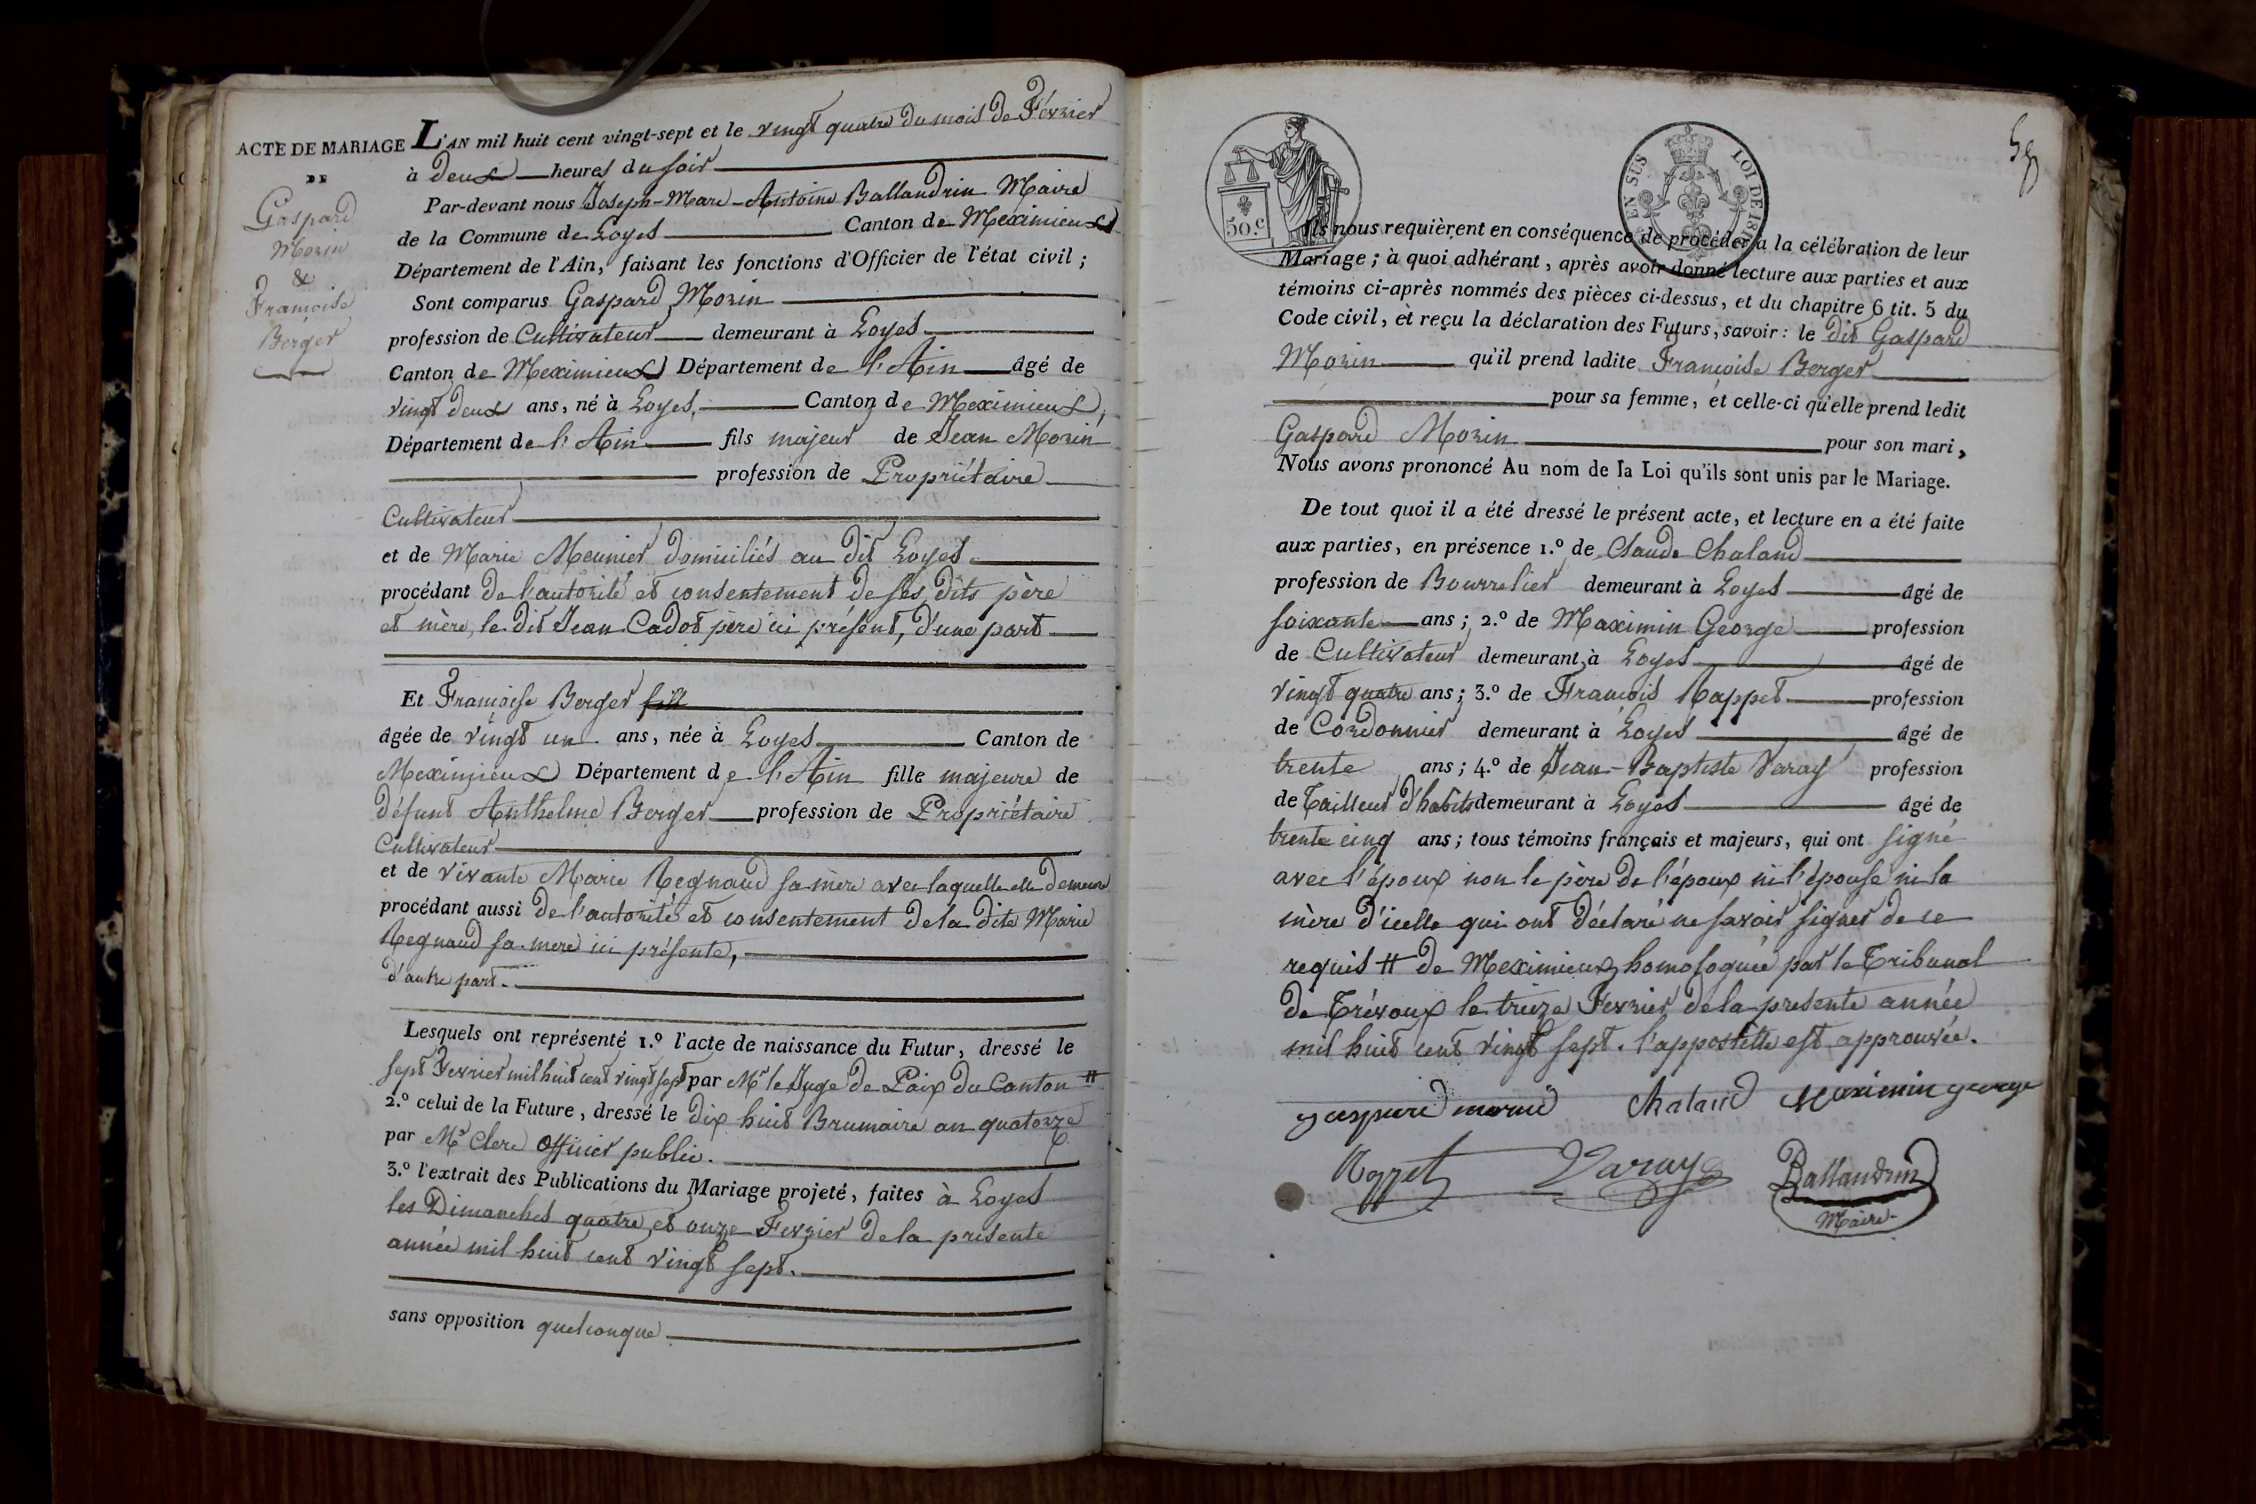 ACTE DE MARIAGE
DE
Gaspard
Morin
&
Françoise
Berger
L'AN mil huit cent vingt-sept et le vingt quatre du mois de Février
à deux heures du soir
Par-devant nous Joseph-Marc-Antoine Ballandrin Maire
de la Commune de Loyes Canton de Meximieux
Département de l'Ain, faisant les fonctions d'Officier de l'état civil ;
Sont comparus Gaspard Morin
profession de Cultivateur demeurant à Loyes
Canton de Meximieux Département de l'Ain âgé de
vingt deux ans, né à Loyes, Canton de Meximieux,
Département de l'Ain fils majeur de Jean Morin
profession de Propriétaire
Cultivateur
et de Marie Meunier domiciliés au dit Loyes
procédant de l'autorité et consentement de ses dits père
et mère, le dit Jean Cadot père ici présent, d'une part
Et Françoise Berger fille
âgée de vingt un ans, née à Loyes Canton de
Meximieux Département de l'Ain fille majeure de
défunt Anthelme Berger profession de Propriétaire
Cultivateur
et de vivante Marie Regnaud sa mère avec laquelle elle demeure
procédant aussi de l'autorité et consentement de la dite Marie
Regnaud sa mere ici présente,
d'autre part.
Lesquels ont représenté 1.º l'acte de naissance du Futur, dressé le
sept Fevrier mil huit cent vingt sept par Mr le Juge de Paix du Canton #
2.º celui de la Future, dressé le dix huit Brumaire an quatorze
par Mr Clerc Officier public.
3.º l'extrait des Publications du Mariage projeté, faites à Loyes
les Dimanches quatre et onze Fevrier de la présente
année mil huit cent vingt sept.
sans opposition quelconque
58
50 c
EN SUS
LOI DE 1816
Ils nous requièrent en conséquence de procéder à la célébration de leur
Mariage ; à quoi adhérant, après avoir donné lecture aux parties et aux
témoins ci-après nommés des pièces ci-dessus, et du chapitre 6 tit. 5 du
Code civil, et reçu la déclaration des Futurs, savoir : le dit Gaspard
Morin qu'il prend ladite Françoise Berger
pour sa femme, et celle-ci qu'elle prend ledit
Gaspard Morin pour son mari,
Nous avons prononcé Au nom de la Loi qu'ils sont unis par le Mariage.
De tout quoi il a été dressé le présent acte, et lecture en a été faite
aux parties, en présence 1.º de Claude Chaland
profession de Bourrelier demeurant à Loyes âgé de
soixante ans ; 2.º de Maximin George profession
de Cultivateur demeurant à Loyes âgé de
vingt quatre ans ; 3.º de François Rappet profession
de Cordonnier demeurant à Loyes âgé de
trente ans ; 4.º de Jean-Baptiste Varay profession
de Tailleur d'habits demeurant à Loyes âgé de
trente cinq ans ; tous témoins français et majeurs, qui ont signé
avec l'époux non le père de l'époux ni l'épouse ni la
mère d'icelle qui ont déclaré ne savoir signer de ce
requis # de Meximieux homologuée par le Tribunal
de Trévoux le treize Fevrier de la presente année
mil huit cent vingt sept. l'appostille est approuvée.
gaspard morin Chaland Maximin george
Rappet Varay Ballandrin
Maire